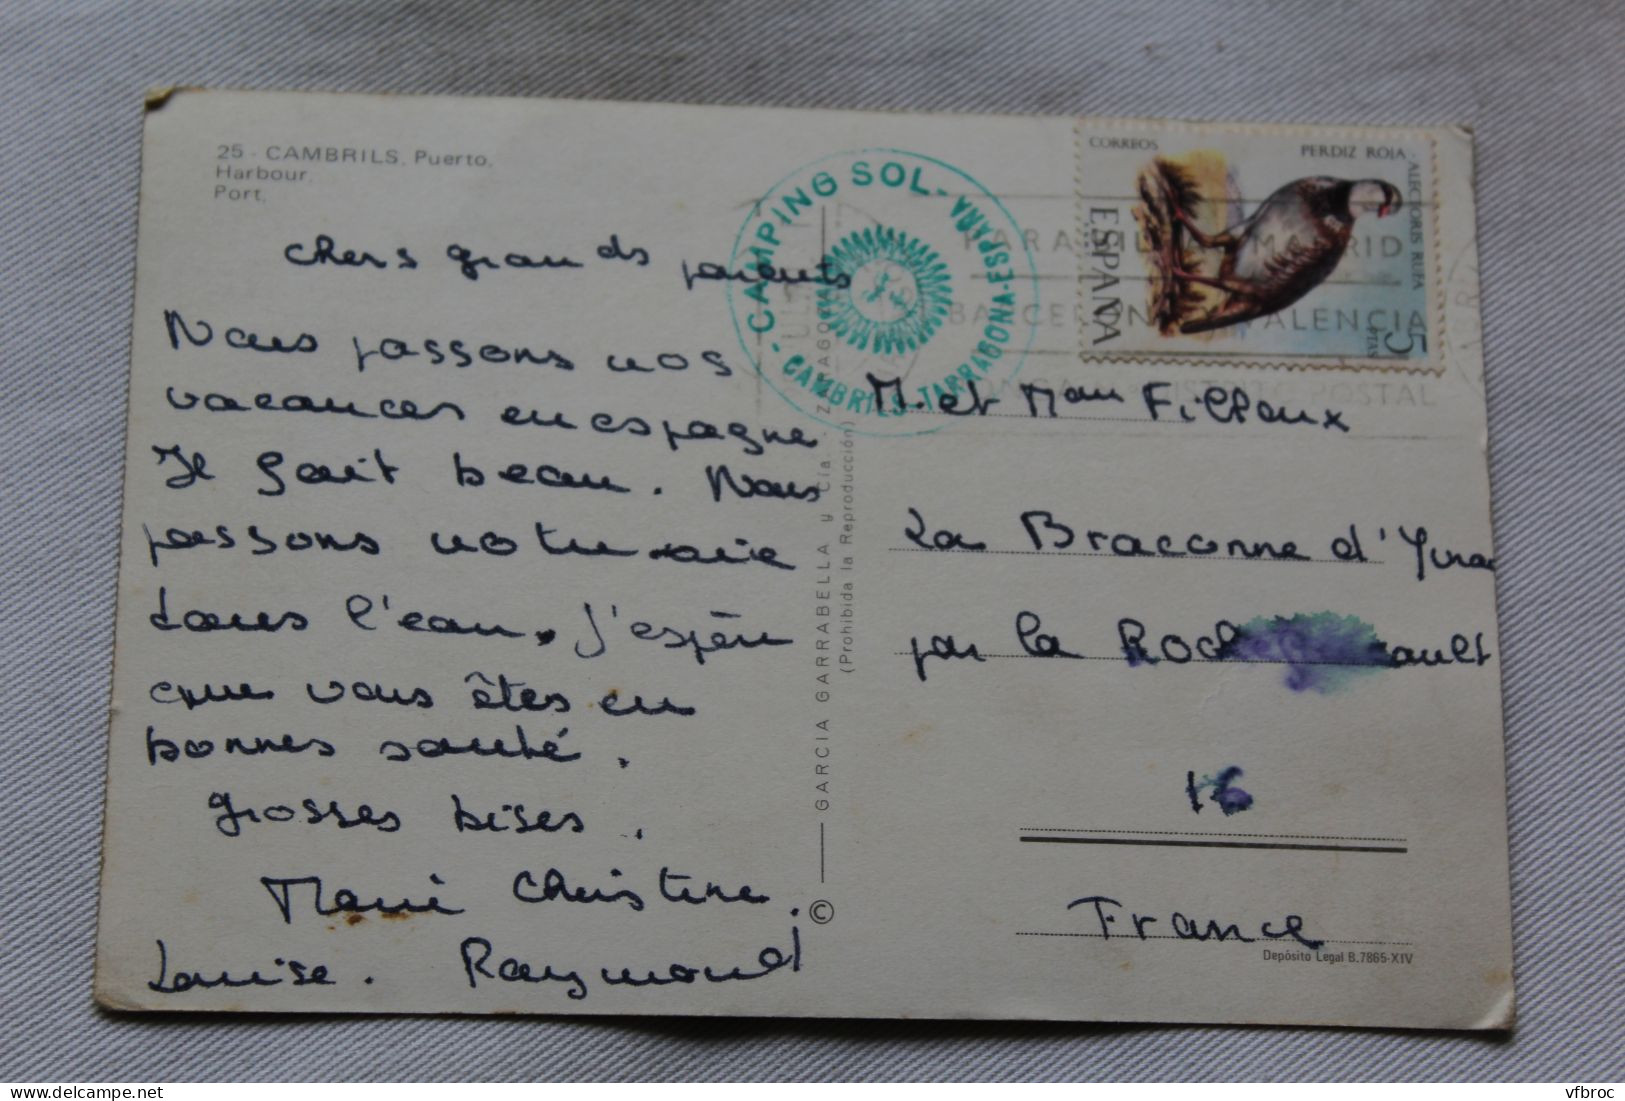 25 - CAMBRILS. Puerto.
Harbour.
Port.
chers grands parents
Nous passons nos
vacances en espagne
Il fait beau. Nous
passons notre vie
dans l'eau. J'espère
que vous êtes en
bonnes santé.
Grosses bises.
Marie Christine.
Louise. Raymond
GARCIA GARRABELLA y Cía. - ZARAGOZA
(Prohibida la Reproducción)
©
CAMPING SOL - CAMBRILS-TARRAGONA-ESPAÑA
CORREOS
PERDIZ ROJA - ALECTORIS RUFA
ESPAÑA
5 PTAS
PARA MADRID
BARCELONA Y VALENCIA
DISTRITO POSTAL
M. et Mau Filloux
La Braconne d'
par la
16
France
Depósito Legal B.7865-XIV
vfbroc